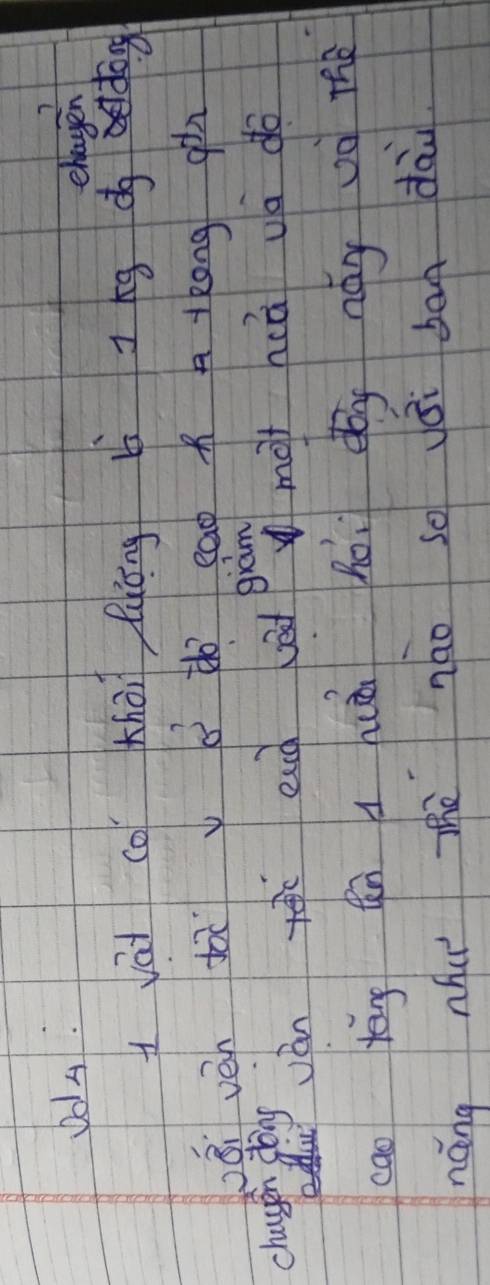 Vd 4 :
1 vật có khối lượng là 1 kg đg chuyển động
với vận tốc v ở độ cao h trong qtr
chuyển động vận tốc của vật giảm một nửa và độ
cao tăng lên 1 nửa hỏi động năng và thế
năng như thế nào so với ban đầu.